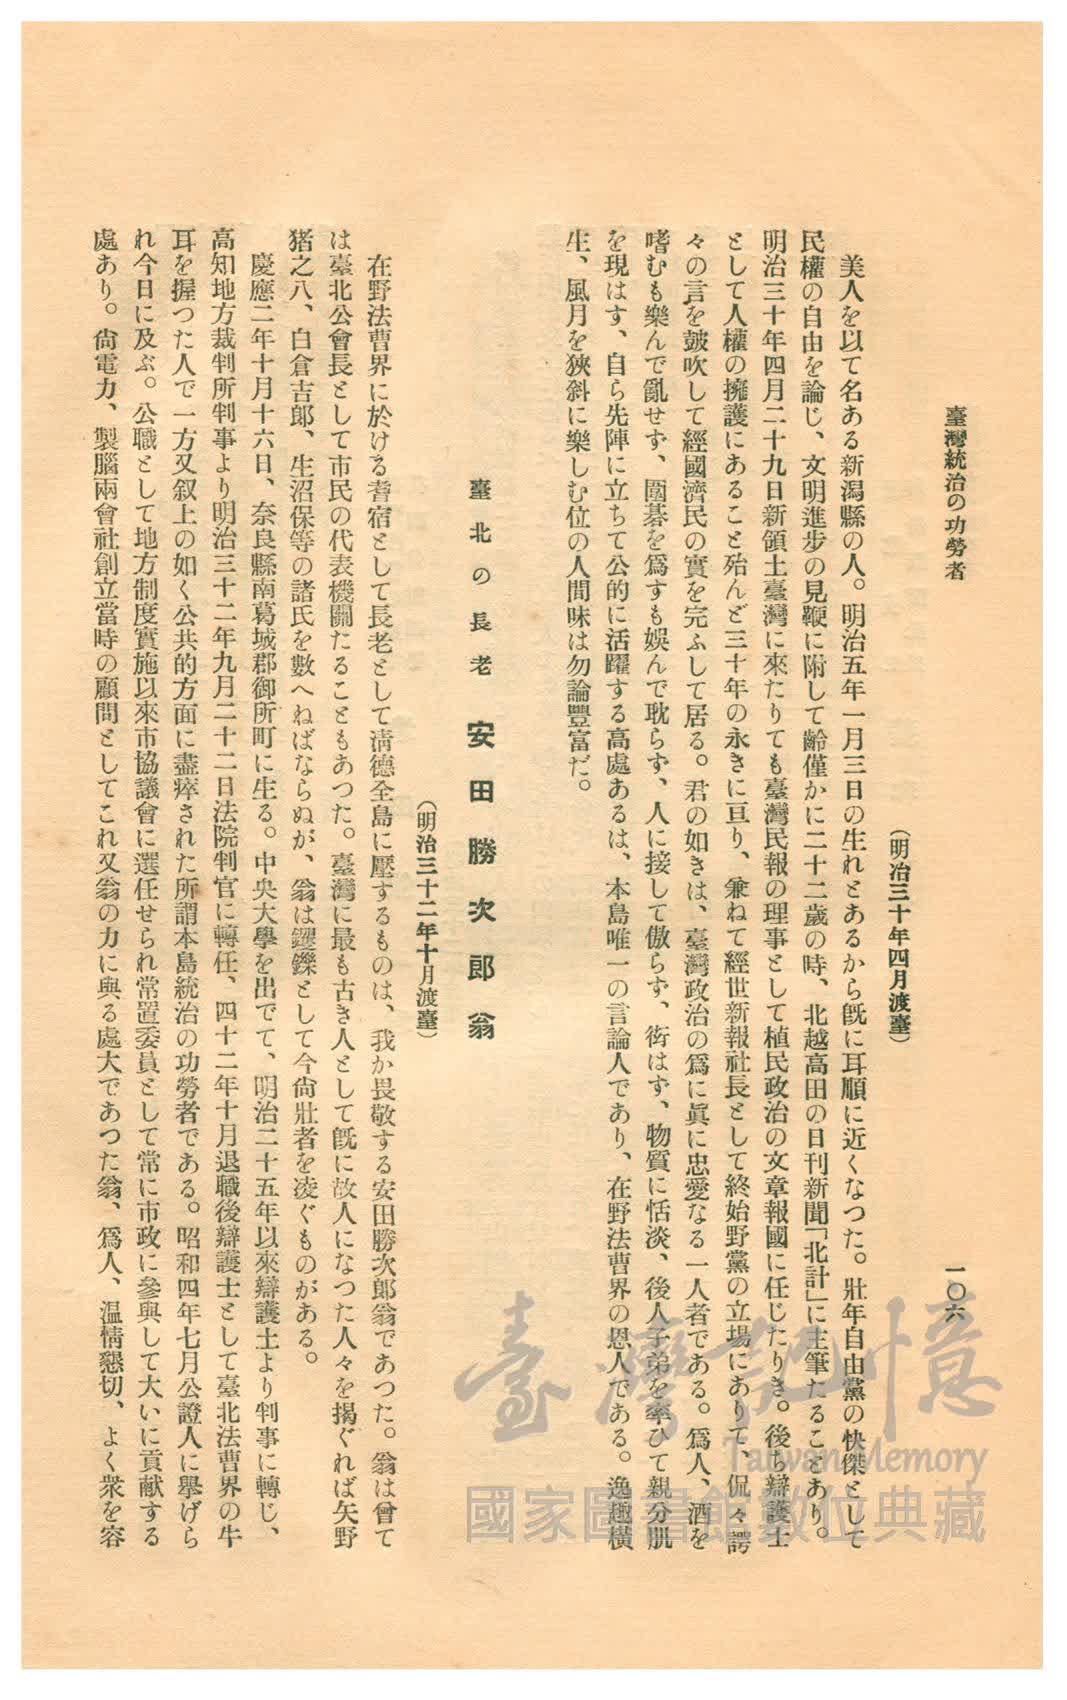 臺灣統治の功勞者
一〇六
(明治三十年四月渡臺)
美人を以て名ある新潟縣の人。明治五年一月三日の生れとあるから旣に耳順に近くなつた。壯年自由黨の快傑として
民權の自由を論じ、文明進步の見鞭に附して齡僅かに二十二歲の時、北越高田の日刊新聞「北計」に主筆たることあり。
明治三十年四月二十九日新領土臺灣に來たりても臺灣民報の理事として植民政治の文章報國に任じたりき。後ち辯護士
として人權の擁護にあること殆んど三十年の永きに亘り、兼ねて經世新報社長として終始野黨の立場にありて、侃々諤
々の言を皷吹して經國濟民の實を完ふして居る。君の如きは、臺灣政治の爲に眞に忠愛なる一人者である。爲人、酒を
嗜むも樂んで亂せず、圍碁を爲すも娯んで耽らず、人に接して傲らず、衒はず、物質に恬淡、後人子弟を率ひて親分肌
を現はす、自ら先陣に立ちて公的に活躍する高處あるは、本島唯一の言論人であり、在野法曹界の恩人である。逸趣橫
生、風月を狹斜に樂しむ位の人間味は勿論豐富だ。
臺北の長老 安田勝次郎翁
(明治三十二年十月渡臺)
在野法曹界に於ける耆宿として長老として淸德全島に壓するものは、我か畏敬する安田勝次郎翁であつた。翁は曾て
は臺北公會長として市民の代表機關たることもあつた。臺灣に最も古き人として旣に故人になつた人々を揭ぐれば矢野
猪之八、白倉吉郎、生沼保等の諸氏を數へねばならぬが、翁は钁鑠として今尙壯者を凌ぐものがある。
慶應二年十月十六日、奈良縣南葛城郡御所町に生る。中央大學を出でて、明治二十五年以來辯護士より判事に轉じ、
高知地方裁判所判事より明治三十二年九月二十二日法院判官に轉任、四十二年十月退職後辯護士として臺北法曹界の牛
耳を握つた人で一方又叙上の如く公共的方面に盡瘁された所謂本島統治の功勞者である。昭和四年七月公證人に擧げら
れ今日に及ぶ。公職として地方制度實施以來市協議會に選任せられ常置委員として常に市政に參與して大いに貢獻する
處あり。尙電力、製腦兩會社創立當時の顧問としてこれ又翁の力に與る處大であつた翁、爲人、溫情懇切、よく衆を容
臺灣記憶
Taiwan Memory
國家圖書館數位典藏